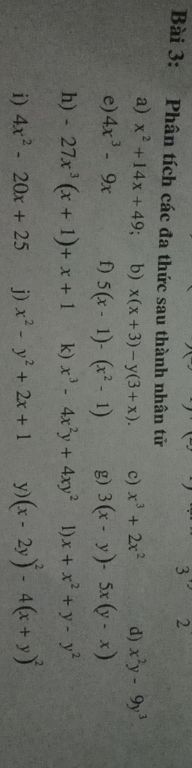 3 2
Bài 3: Phân tích các đa thức sau thành nhân tử
a) x² +14x + 49; b) x(x + 3) – y(3 + x). c) x³ + 2x² d) x²y - 9y³
e) 4x³ - 9x f) 5(x - 1)- (x² - 1) g) 3(x - y)- 5x(y - x)
h) - 27x³(x + 1)+ x + 1 k) x³ - 4x²y + 4xy² l)x + x² + y - y²
i) 4x² - 20x + 25 j) x² - y² + 2x + 1 y)(x - 2y)² - 4(x + y)²